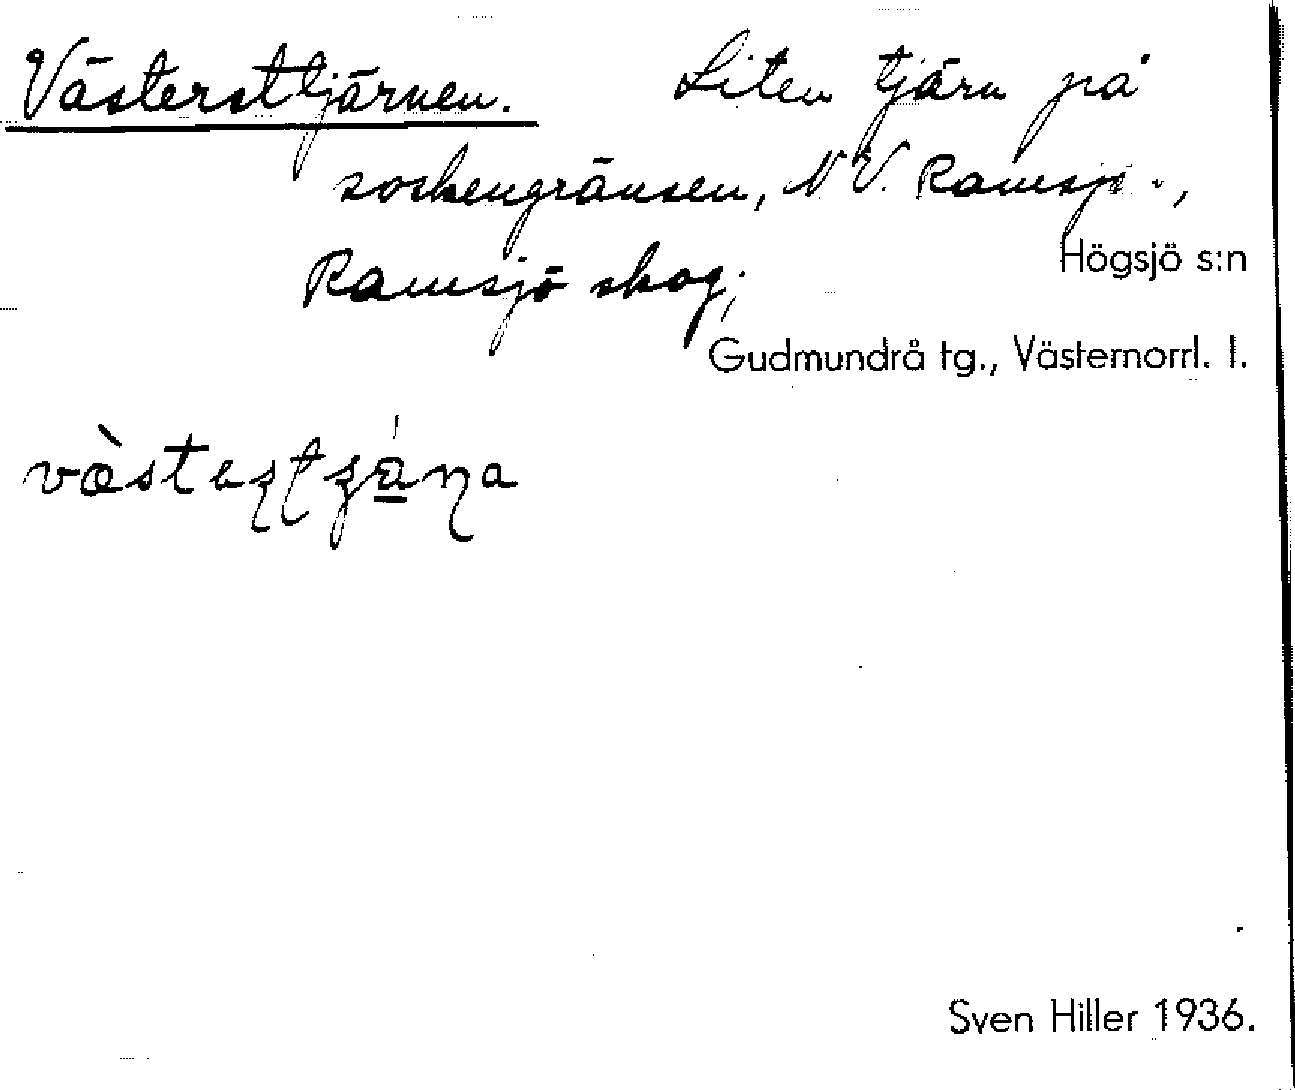 Västersttjärnen. Liten tjärn på
sockengränsen, NV. Ramsjö.,
Ramsjö skog;
Högsjö s:n
Gudmundrå tg., Västernorrl. l.
Sven Hiller 1936.